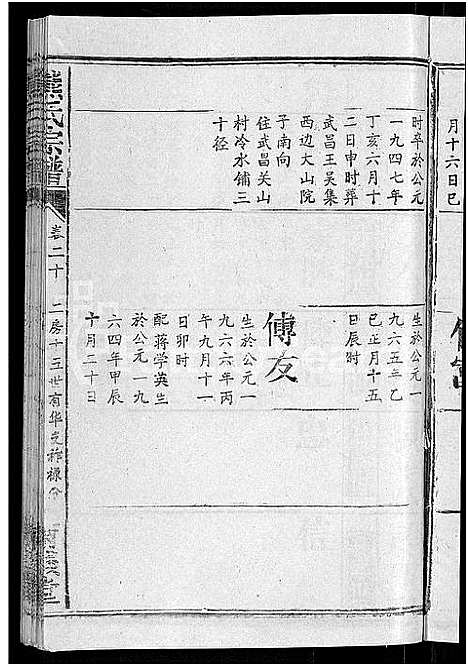 月十六日巳
时卒於公元
一九四七年
丁亥六月十
二日申时葬
武昌王吴集
西边大山院
子南向
住武昌关山
村冷水铺三
十径
生於公元一
九六五年乙
巳正月十五
日辰时
傅友
生於公元一
九六六年丙
午九月十一
日卯时
配蒋学英生
於公元一九
六四年甲辰
十月二十日
氏宗谱
卷二十
二房十五世有华支祚禄分